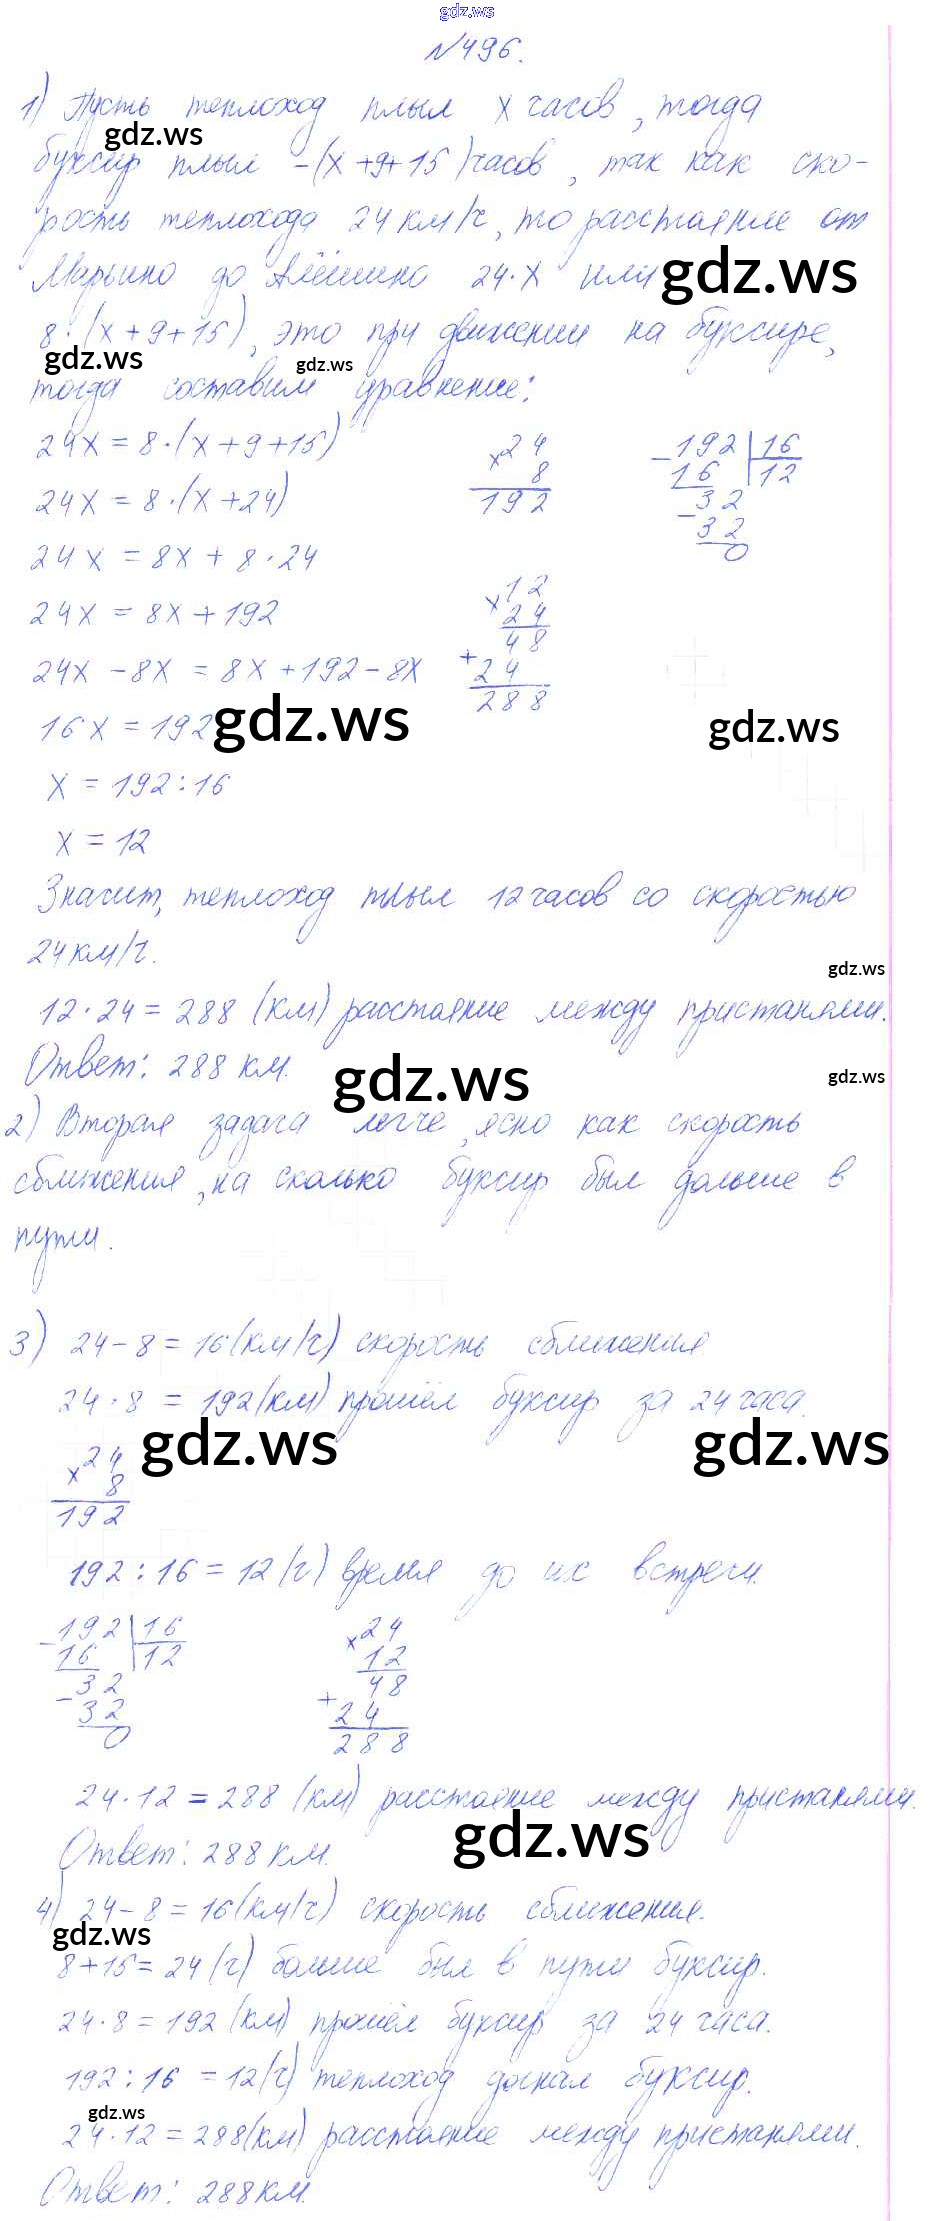 gdz.ws
№496.
1) Пусть теплоход плыл x часов, тогда
gdz.ws
буксир плыл -(x+9+15) часов, так как ско-
рость теплохода 24 км/ч, то расстояние от
Марьино до Алёшино 24·x или
gdz.ws
8·(x+9+15), это при движении на буксире,
gdz.ws gdz.ws
тогда составим уравнение:
24x = 8·(x+9+15)
24x = 8·(x+24)
24x = 8x + 8·24
24x = 8x + 192
24x - 8x = 8x + 192 - 8x
16x = 192
x = 192:16
x = 12
× 24
8
192
- 192 | 16
16 | 12
- 32
32
0
× 12
24
48
+ 24
288
gdz.ws gdz.ws
Значит, теплоход плыл 12 часов со скоростью
24 км/ч.
gdz.ws
12·24 = 288 (км) расстояние между пристанями.
Ответ: 288 км.
gdz.ws gdz.ws
2) Вторая задача легче, ясно как скорость
сближения, на сколько буксир был дольше в
пути.
3) 24-8 = 16(км/ч) скорость сближения
24·8 = 192(км) прошёл буксир за 24 часа.
gdz.ws gdz.ws
× 24
8
192
192:16 = 12(ч) время до их встречи.
- 192 | 16
16 | 12
- 32
32
0
× 24
12
48
+ 24
288
24·12 = 288 (км) расстояние между пристанями.
gdz.ws
Ответ: 288 км.
4) 24-8 = 16(км/ч) скорость сближения.
gdz.ws
8+15 = 24(ч) больше был в пути буксир.
24·8 = 192(км) прошёл буксир за 24 часа.
192:16 = 12(ч) теплоход догнал буксир.
gdz.ws
24·12 = 288(км) расстояние между пристанями.
Ответ: 288 км.